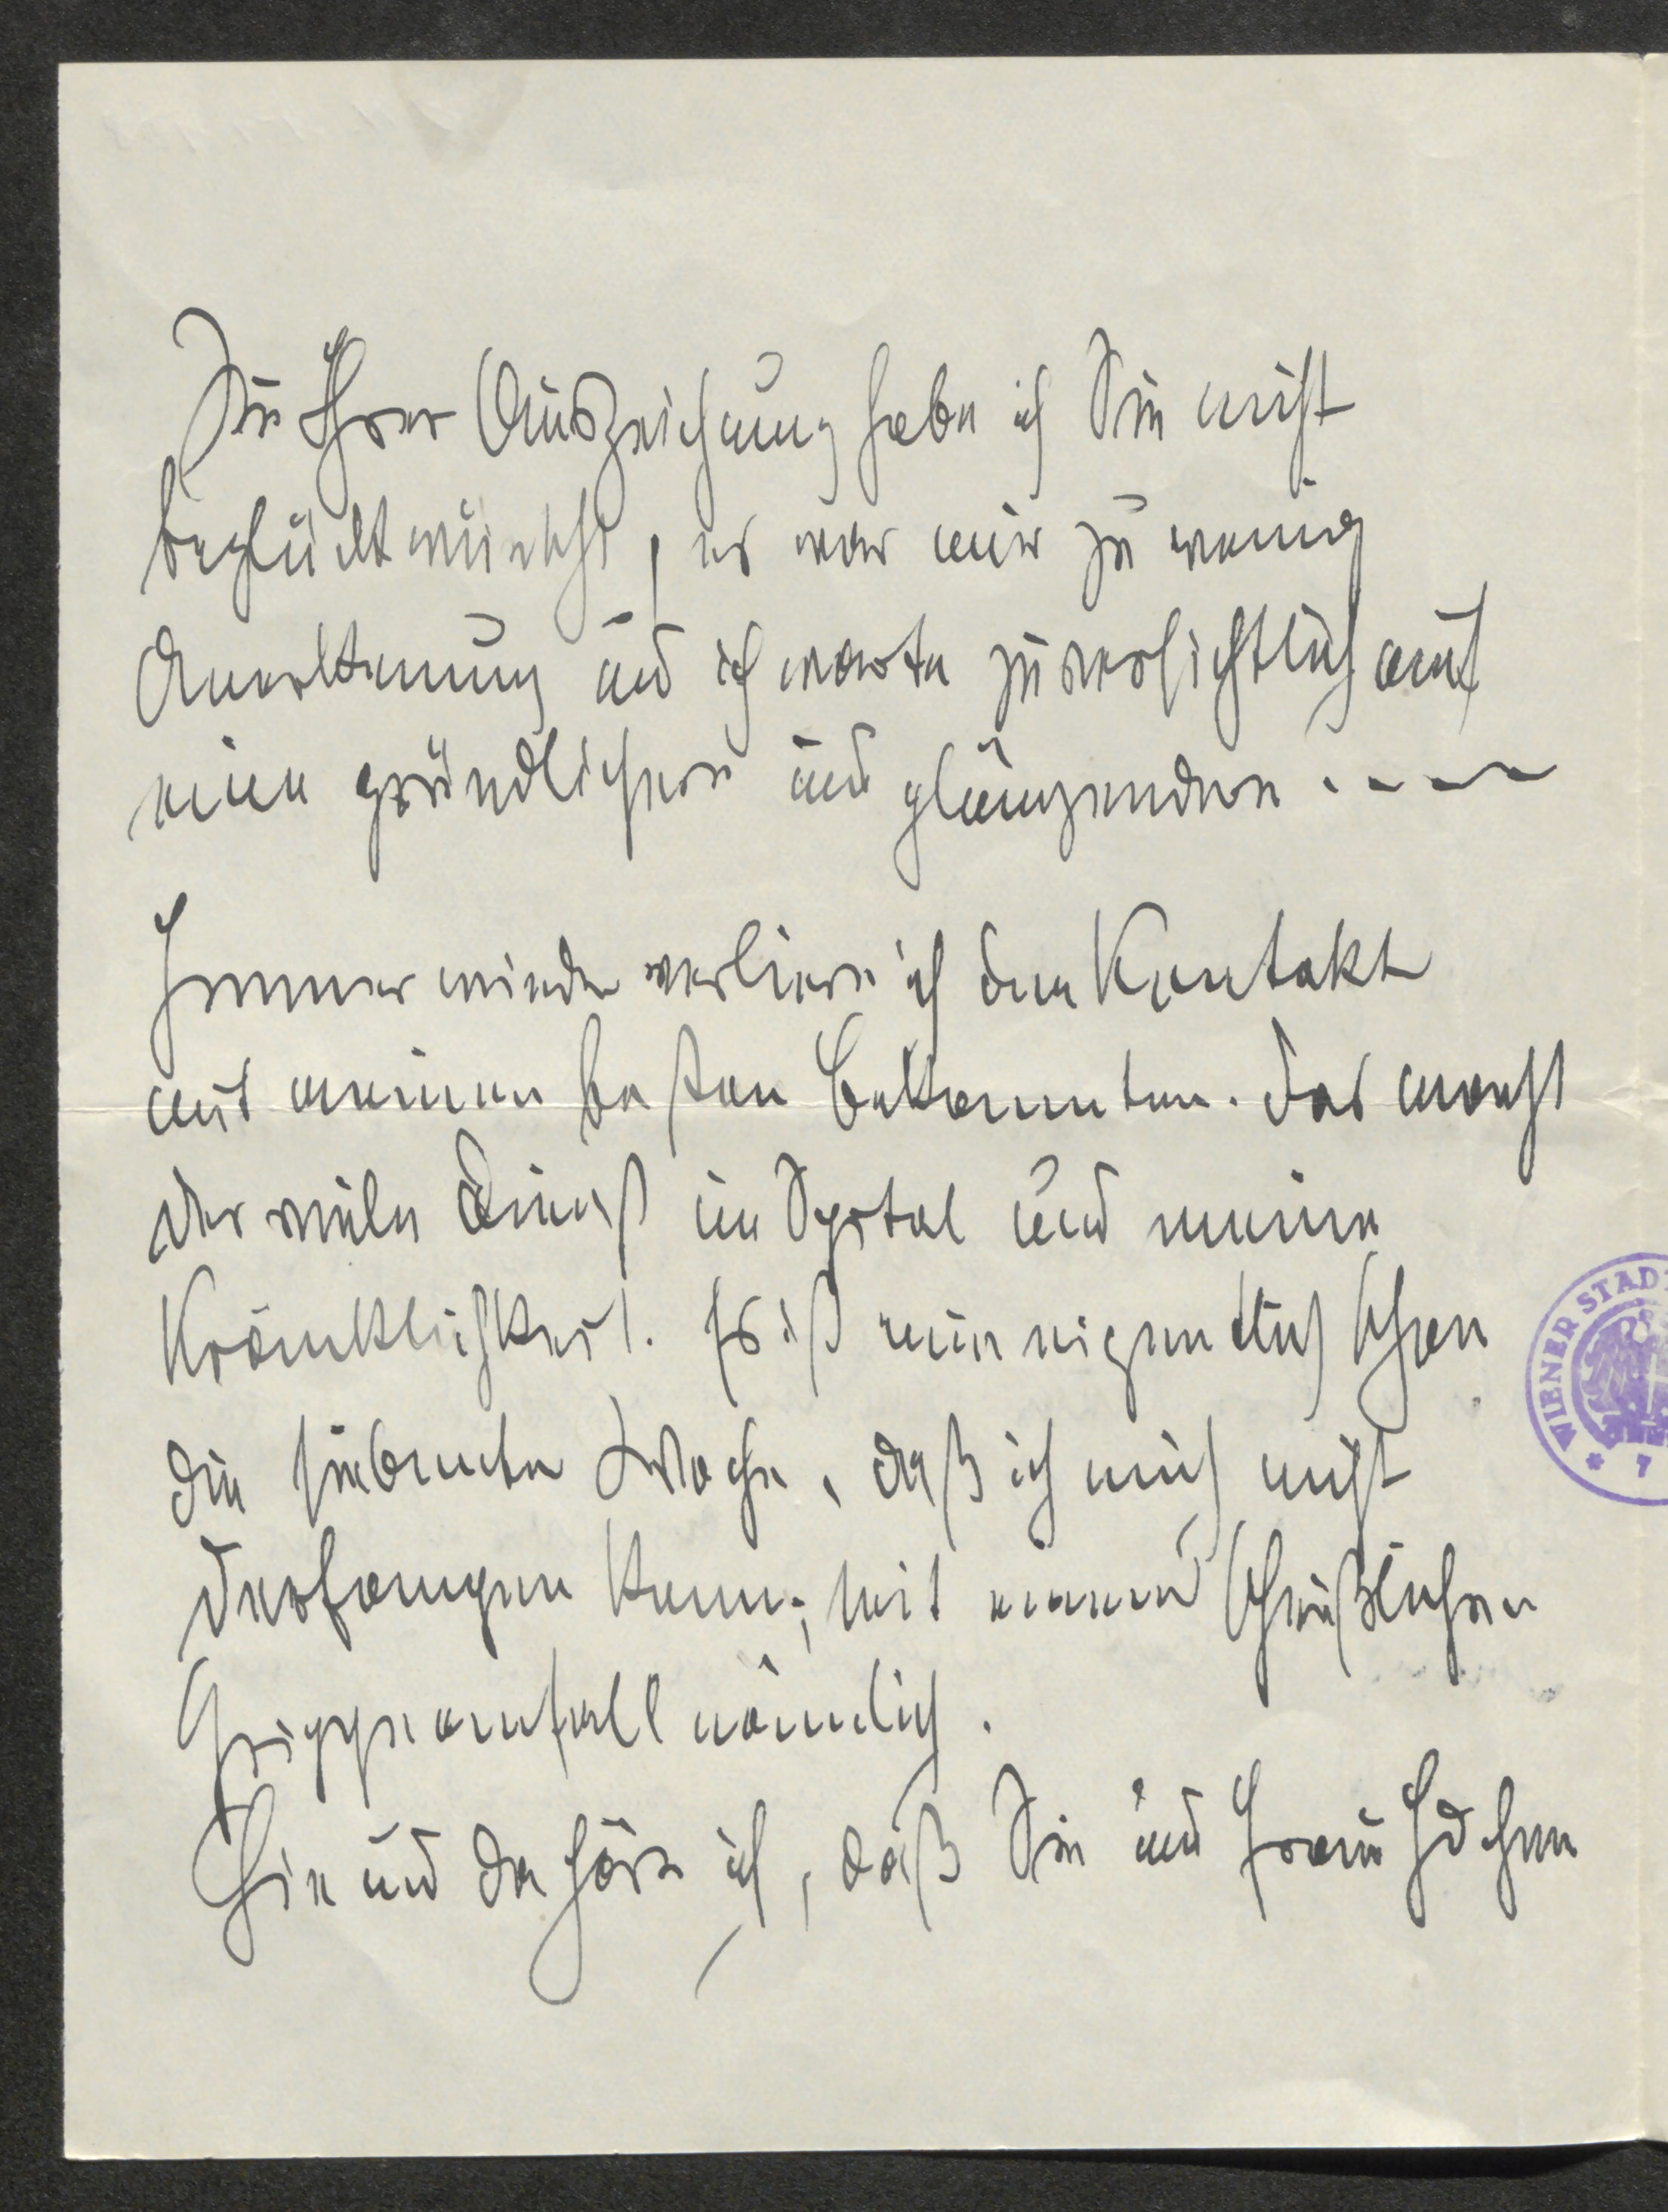 Zu Ihrer Auszeichnung habe ich Sie nicht
beglückwünscht, es war mir zu wenig
Anerkennung und ich warte zuversichtlich auf
eine gründlichere und glänzendere . - - -
Immer wieder verliere ich den Kontakt
mit meinen besten Bekannten. Das macht
der viele Dienst im Spital und meine
Kränklichkeit. Es ist nun eigentlich schon
die siebente Woche, daß ich mich nicht
derfangen kann; mit einem scheußlichen
Grippeanfall nämlich.
Hin und da höre ich, daß Sie und Frau
WIENER STAD
* 7